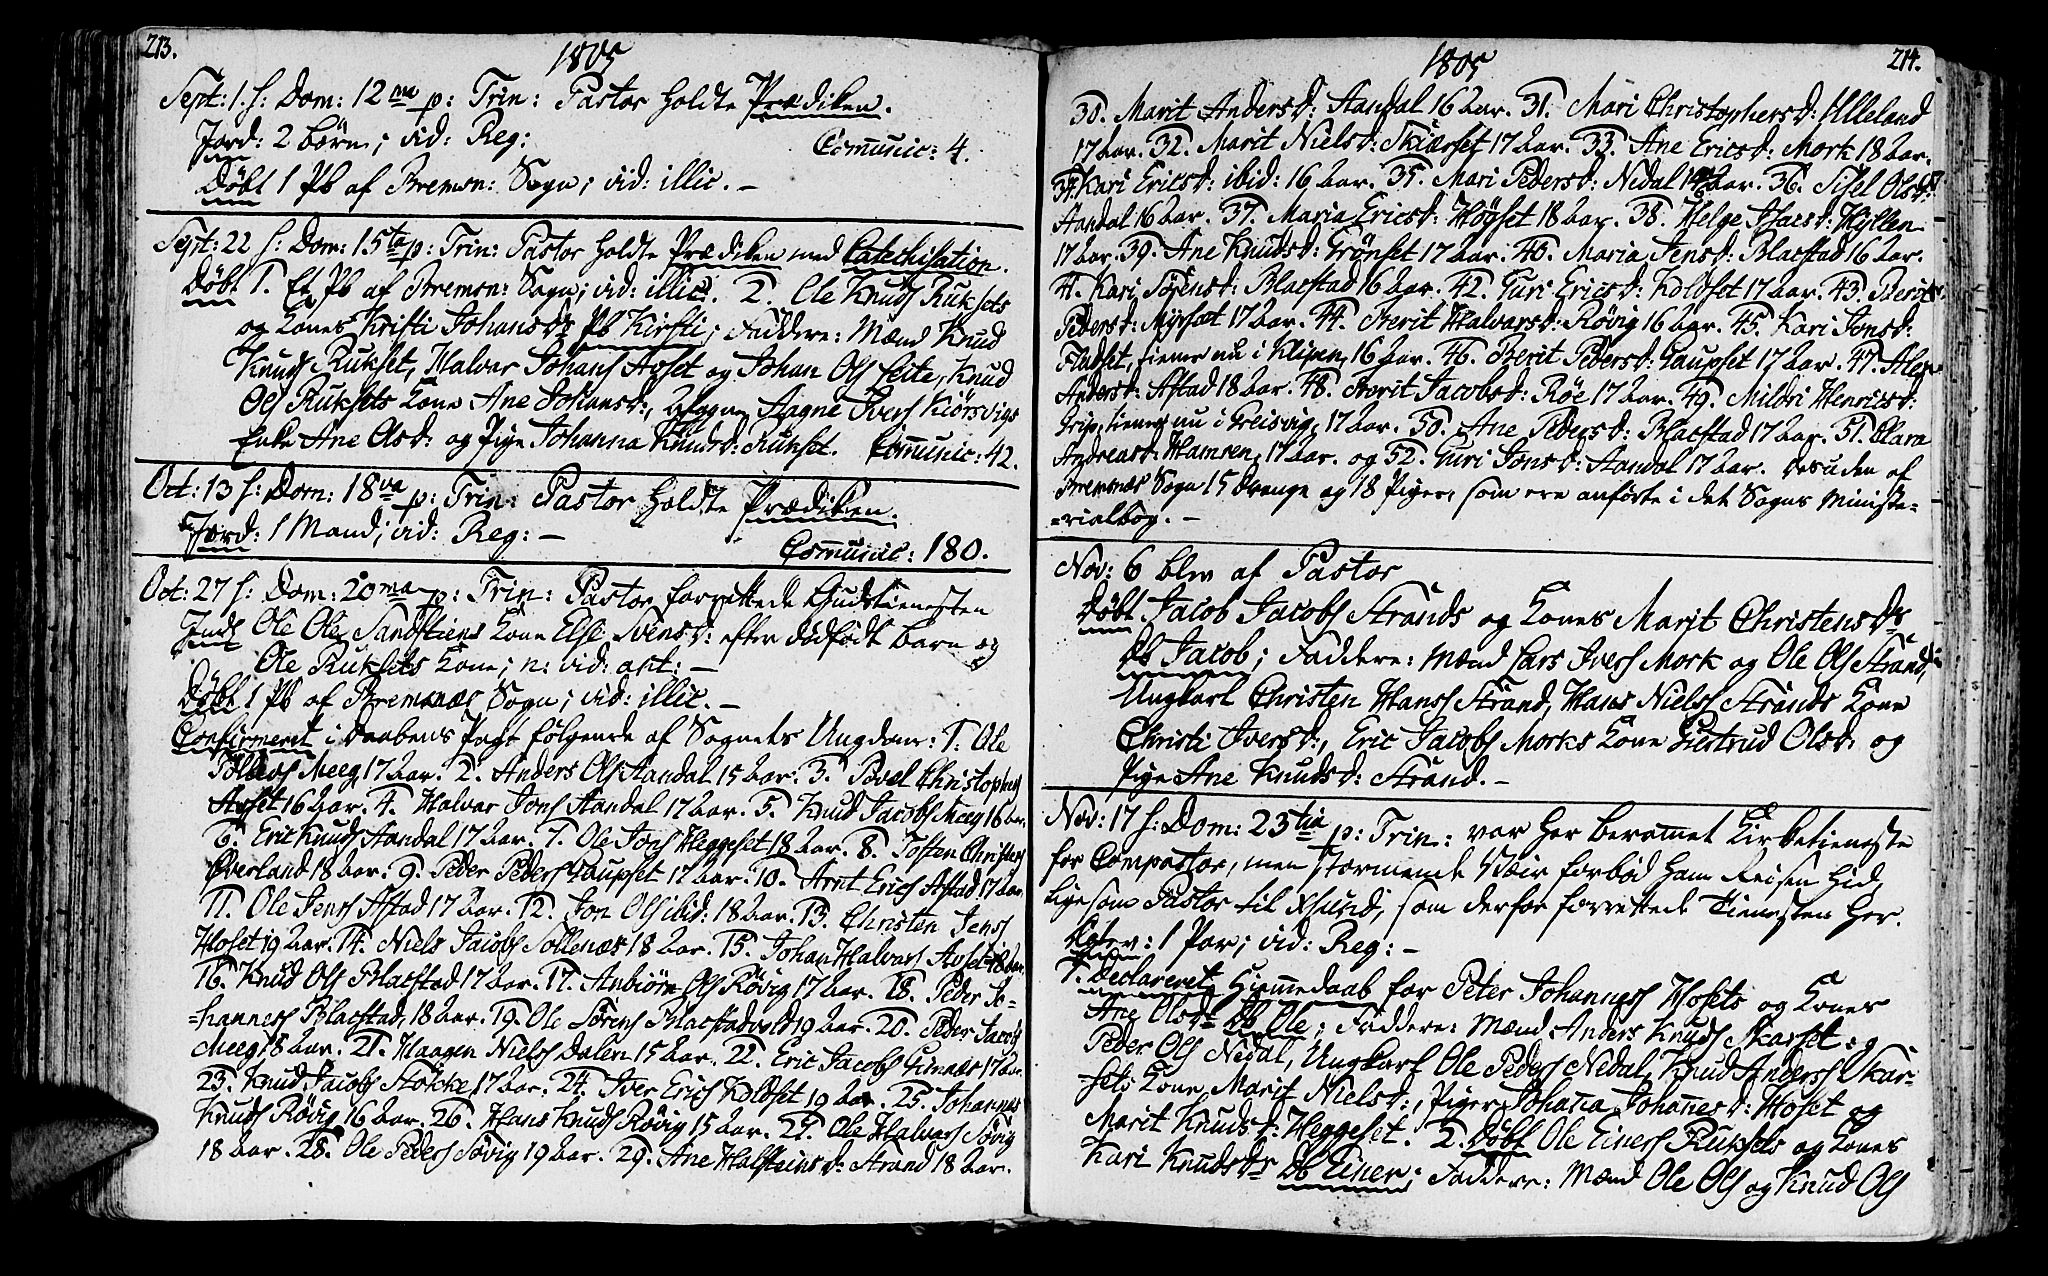 213.
1805
Sept: 1. f: Dom: 12ma p: Trin: Pastor holdte Prædiken.
Jord: 2 børn; vid: Reg:
Comunic: 4.
Døbt 1 Pb af Bremsn: Sogn; vid: illic. —
Sept: 22 f: Dom: 15ta p: Trin: Pastor holdte Prædiken med Catechisation.
Døbt 1. Et Pb af Bremsn: Sogn; vid: illic. 2. Ole Knuds Ruksets
og Kones Kristi Johansdr Pb Kirsti; Faddere: Mænd Knud
Knuds Rukset, Halvar Johans Aoset og Johan Ols Leite, Knud
Ols Ruksets Kone Ane Johansd:, Aagne Ivers Kiörsvigs
Enke Ane Olsd: og Pige Johanna Knudsd: Rukset. Comunic: 42.
Oct: 13 f: Dom: 18va p: Trin: Pastor holdte Prædiken.
Jord: 1 Mand; vid: Reg: —
Comunic: 180.
Oct: 27 f: Dom: 20ma p: Trin: Pastor forrettede Gudstienesten
Inds Ole Oles Sandstiens Kone Else Svensd: efter dødfødt barn og
Ole Ruksets Kone; n: vid: ant: —
Døbt 1 Pb af Bremsnæs Sogn; vid: illic. —
Confirmeret i Daabens Pagt følgende af Sognets Ungdom: 1. Ole
Meeg 17 Aar. 2. Anders Ols Aandal 15 Aar. 3. Povel Christophs
Aoset 16 Aar. 4. Halvar Jons Aandal 17 Aar. 5. Knud Jacobs Meeg 16 Aar.
6. Eric Knuds Aandal 17 Aar. 7. Ole Jons Heggeset 18 Aar. 8. Tosten Christens
Overland 18 Aar. 9. Peder Peders Gaupset 17 Aar. 10. Arnt Erics Astad 17 Aar.
11. Ole Jenss Astad 17 Aar. 12. Jon Ols ibid: 18 Aar. 13. Christen Jenss
Hoset 19 Aar. 14. Niels Jacobs Sollenæs 18 Aar. 15. Johan Halvars Aoset 18 Aar.
16. Knud Ols Blacstad 17 Aar. 17. Anbiörn Ols Rövig 17 Aar. 18. Peder Jo-
=hanness Blacstad, 18 Aar. 19. Ole Sörens Blacstadvold 19 Aar. 20. Peder Jacobs
Meeg 18 Aar. 21. Haagen Nielss Dalen 15 Aar. 22. Eric Jacobs Gimnæs 17 Aar.
23. Knud Jacobs Stokke, 17 Aar. 24. Iver Erics Koldset 19 Aar. 25. Johannes
Knuds Rövig 16 Aar. 26. Hans Knuds Rövig 15 Aar. 27. Ole Halvars Sövig
18 Aar. 28. Ole Peders Sövig 19 Aar. 29. Ane Halsteinsd: Strand 18 Aar.
1805
214.
30. Marit Andersd: Aandal 16 Aar. 31. Mari Christophersd: Ulleland
17 Aar. 32. Marit Nielsd: Skiærset 17 Aar. 33. Ane Ericsd: Mork 18 Aar.
34. Kari Ericsd: ibid: 16 Aar. 35. Mari Pedersd: Nedal Aar. 36. Sisel Olsd:
Aandal 16 Aar. 37. Maria Ericsd: Högset 18 Aar. 38. Helge Isacsd: Hyllen
17 Aar. 39. Ane Knudsd: Grönset 17 Aar. 40. Maria Jensd: Blacstad 16 Aar.
41. Kari Sörensd: Blacstad 16 Aar. 42. Guri Ericsd: Koldset 17 Aar. 43. Berit
Pedersd: Myrset 17 Aar. 44. Berit Halvarsd: Rövig 16 Aar. 45. Kari Jonsd:
Fladset, tiener nu i Klipen, 16 Aar. 46. Berit Pedersd: Gaupset 17 Aar. 47.
Andersd: Astad 18 Aar. 48. Berit Jacobsd: Röe 17 Aar. 49. Mildri Henricsd:
Grip, tiener nu i Freisvig, 17 Aar. 50. Ane Pedersd: Blacstad 17 Aar. 51. Clara
Andreasd: Hamsen, 17 Aar. og 52. Guri Jonsd: Aandal 17 Aar. Desuden af
Bremsnæs Sogn 15 Drenge og 18 Piger, som ere anførte i det Sogns Ministe-
=rialbog. —
Nov: 6 blev af Pastor
Døbt Jacob Jacobs Strands og Kones Marit Christensdr
Db Jacob; Faddere: Mænd Lars Ivers Mork og Ole Ols Strand,
Ungkarl Christen Hanss Strand, Hans Nielss Strands Kone
Christi Iversd:, Eric Jacobs Morks Kone Giertrud Olsd: og
Pige Ane Knudsd: Strand. —
Nov: 17 f: Dom: 23tia p: Trin: var her beramet Kirketieneste
for Compastor, men stormende Veir forbød ham Reisen hid,
ligesom Pastor til Øsund, som derfor forrettede Tienesten her.
Cop: 1 Par; vid: Reg: —
1. Declareret Hiemmedaab for Peter Johanness Hosets og Kones
Ane Olsdr Db Ole; Faddere: Mænd Anders Knuds Skarset og
Peder Ols Nedal, Ungkarl Ole Peders Nedal, Knud Anderss Skar-
sets Kone, Marit Nielsd:, Piger Johana Johanesd: Hoset og
Marit Knudsd: Heggeset. 2. Døbt Ole Einers Ruksets og Kones
Kari Knudsdr Db Einer; Faddere: Mænd Ole Ols og Knud Ols